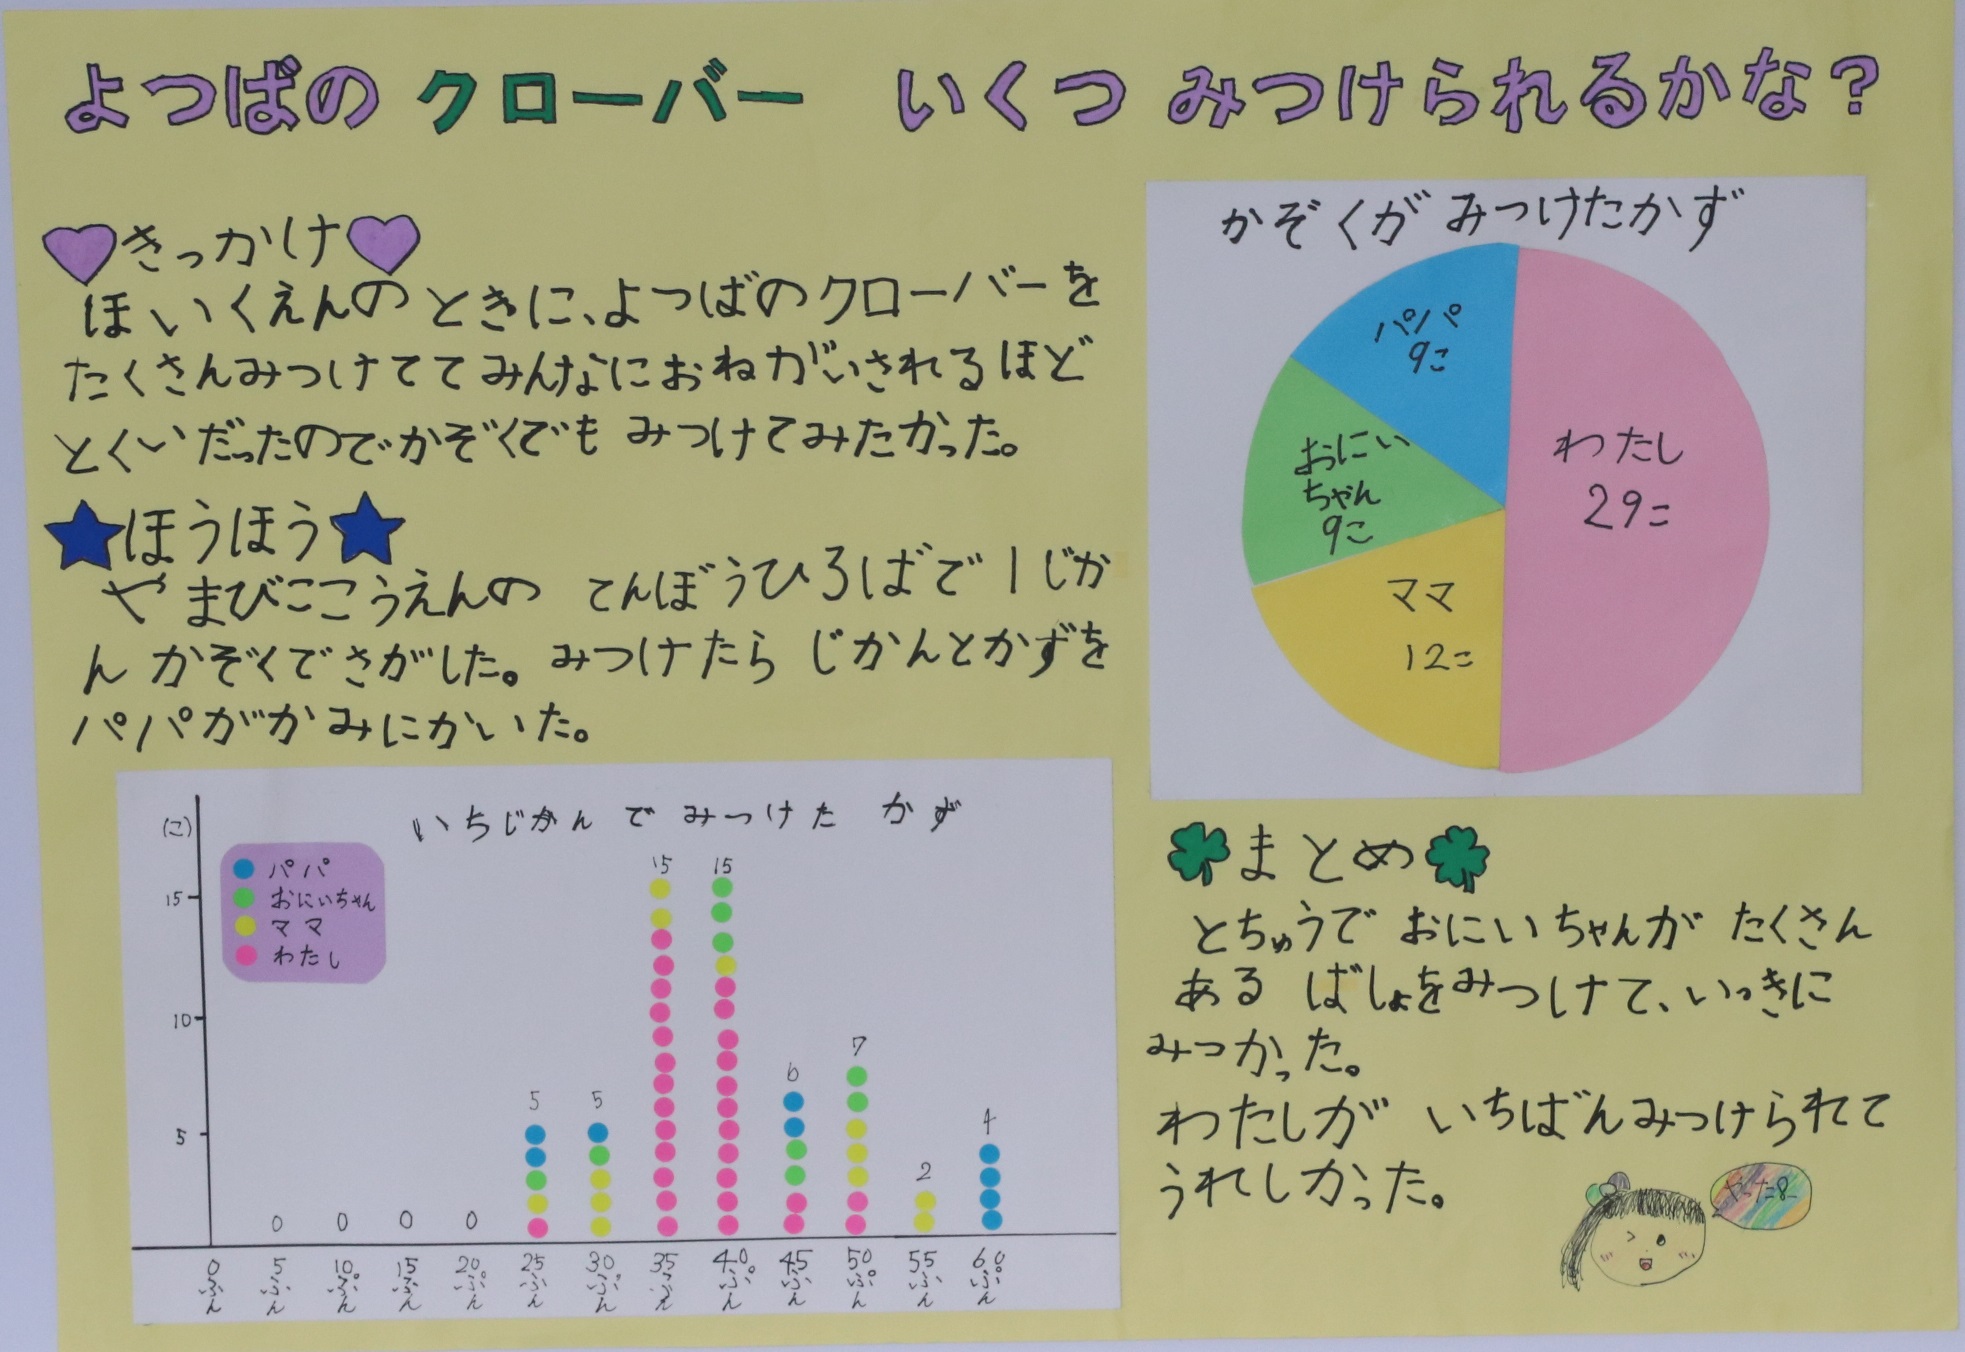 よつばの クローバー いくつ みつけられるかな？
きっかけ
ほいくえんの ときに、よつばのクローバーを
たくさんみつけててみんなにおねがいされるほど
とくいだったのでかぞくでも みつけてみたかった。
ほうほう
やまびここうえんの てんぼうひろばで 1じか
ん かぞくでさがした。みつけたら じかんとかずを
パパがかみにかいた。
いちじかんで みつけた かず
(こ)
15
10
5
パパ
おにいちゃん
ママ
わたし
0 0 0 0 5 5 15 15 6 7 2 4
0ふん 5ふん 10ぷん 15ふん 20ぷん 25ふん 30ぷん 35ふん 40ぷん 45ふん 50ぷん 55ふん 60ぷん
かぞくが みつけたかず
パパ
9こ
おにい
ちゃん
9こ
ママ
12こ
わたし
29こ
まとめ
とちゅうで おにいちゃんが たくさん
ある ばしょをみつけて、いっきに
みつかった。
わたしが いちばんみつけられて
うれしかった。
やったあー